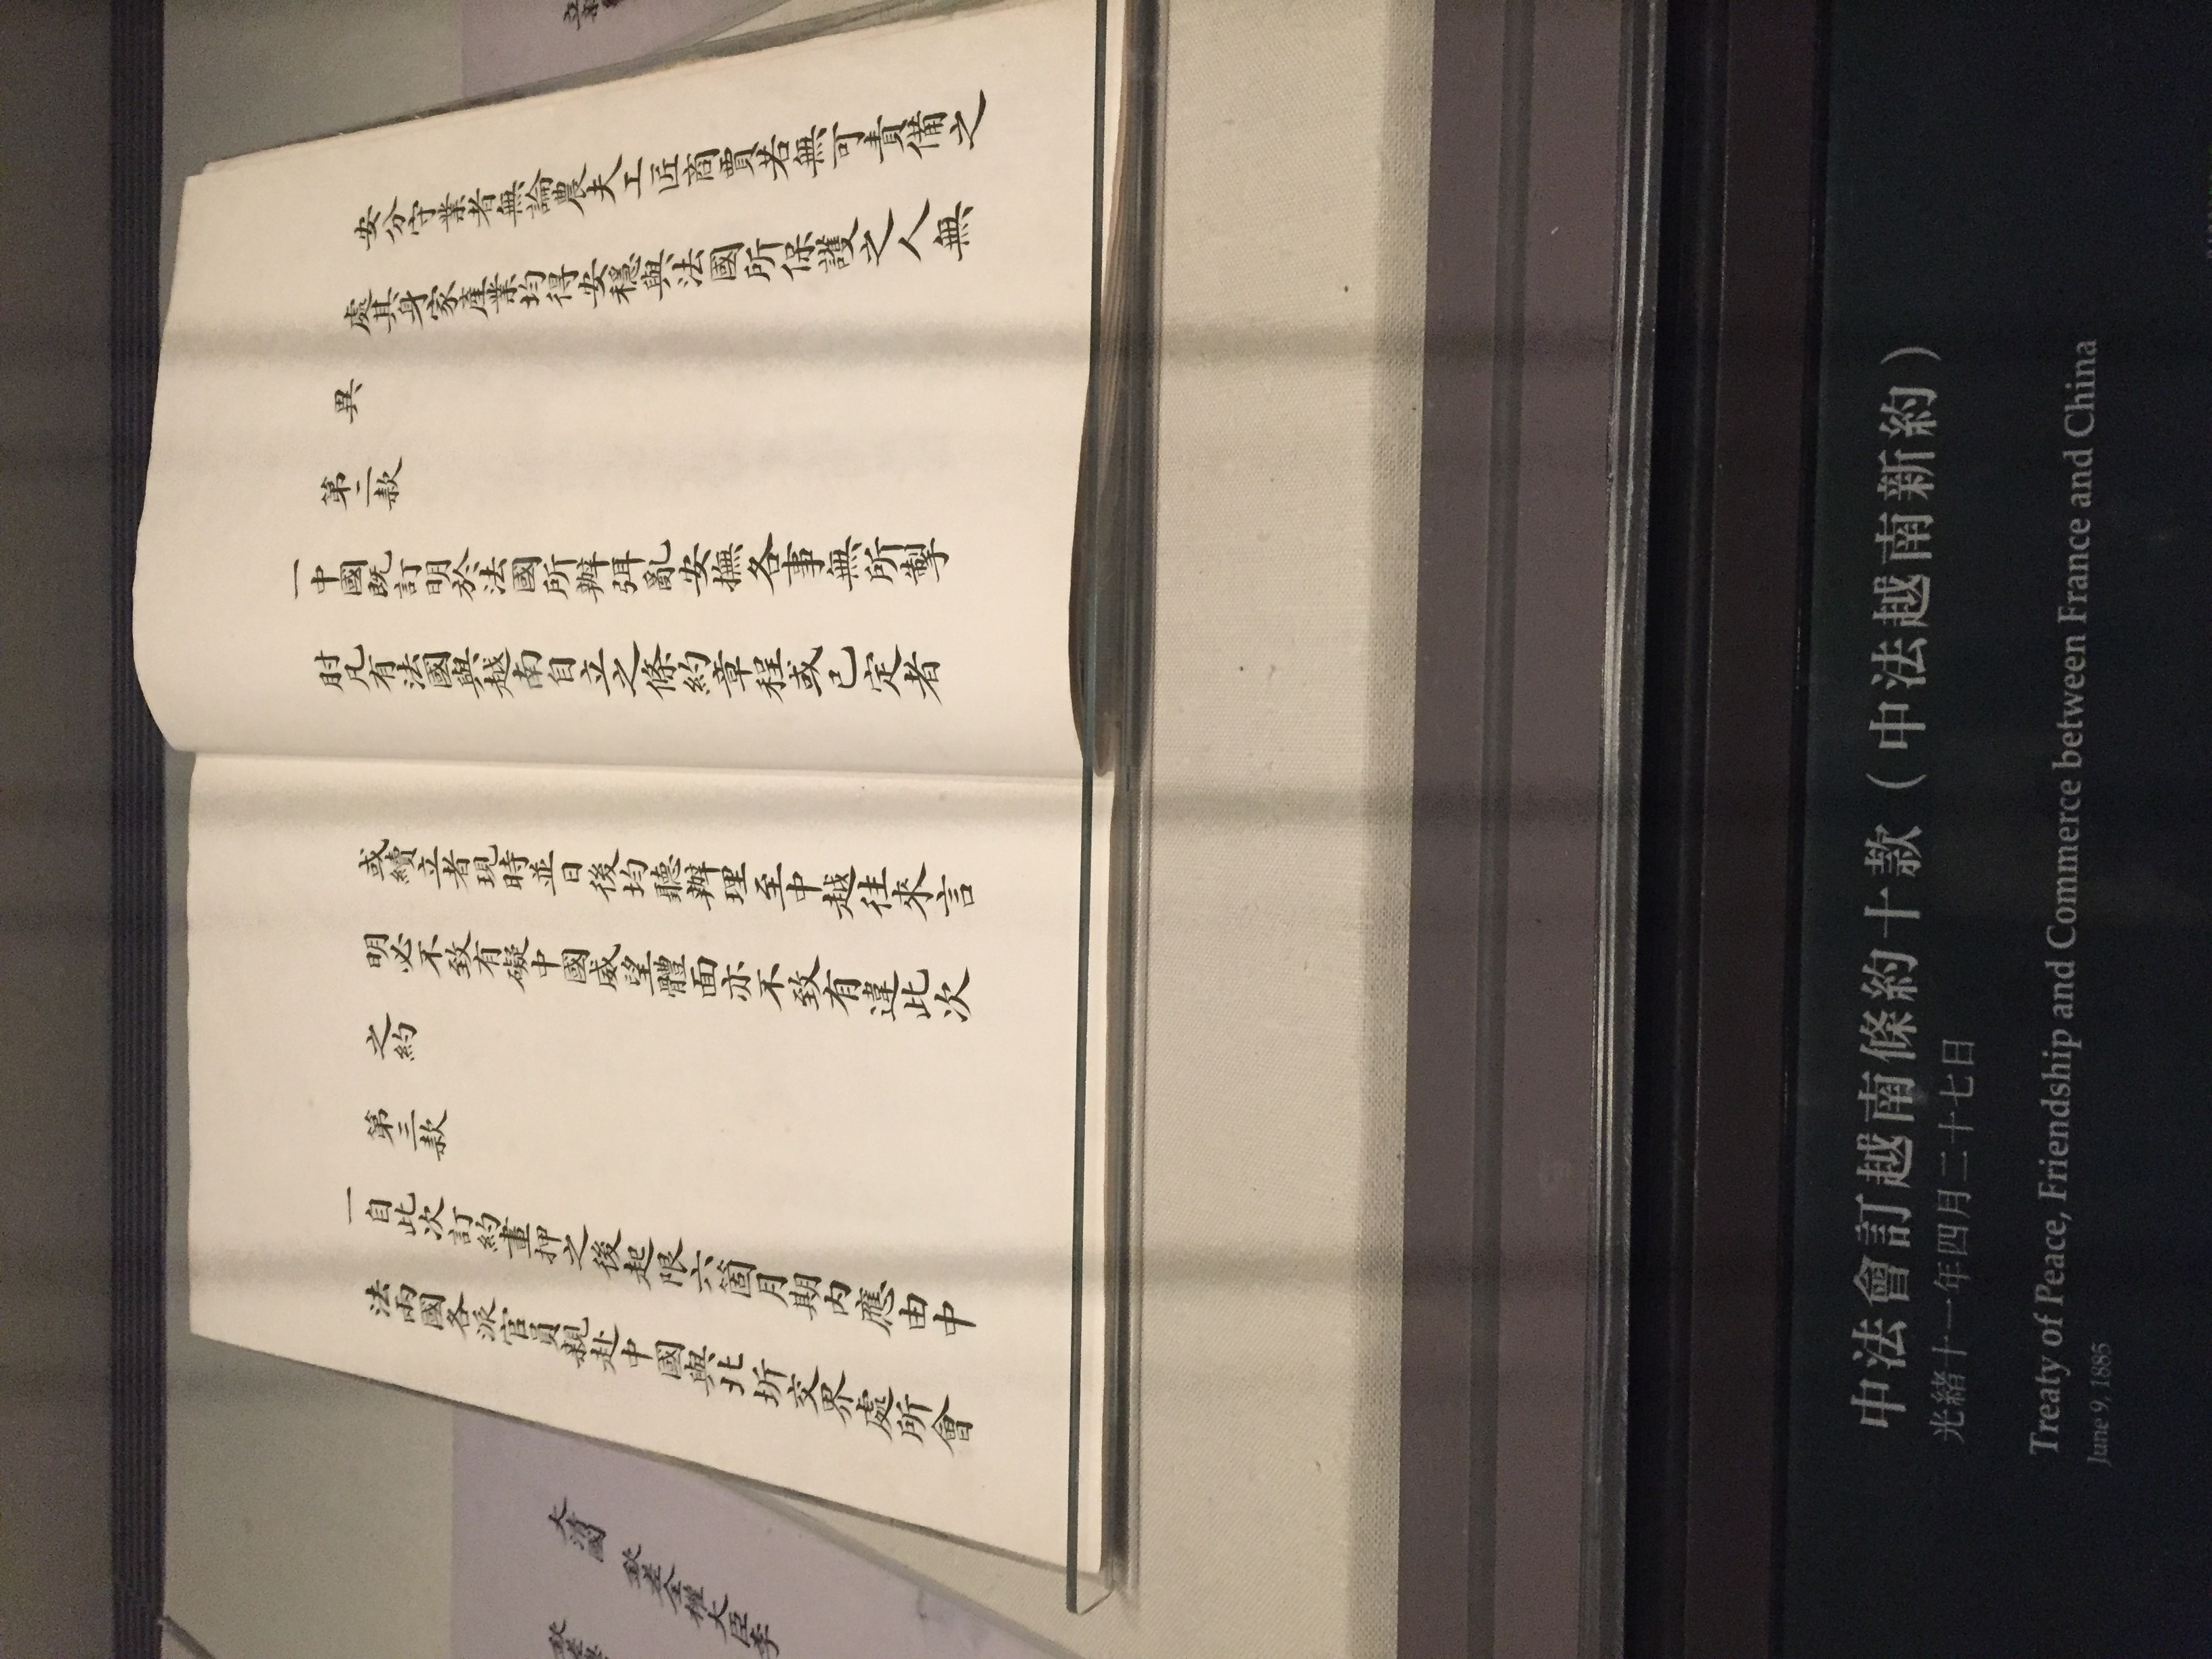 安分守業者無論農夫工匠商賈若無可責備之
處其身家產業均得安穩與法國所保護之人無
異
第二款
一中國既訂明於法國所辦弭亂安撫各事無所掣
肘凡有法國與越南自立之條約章程或已定者
或續立者現時並日後均聽辦理至中越往來言
明必不致有礙中國威望體面亦不致有違此次
之約
第三款
一自此次訂約畫押之後起限六箇月期內應由中
法兩國各派官員親赴中國與北圻交界處所會
大清國 欽差全權大臣李
中法會訂越南條約十款（中法越南新約）
光緒十一年四月二十七日
Treaty of Peace, Friendship and Commerce between France and China
June 9, 1885